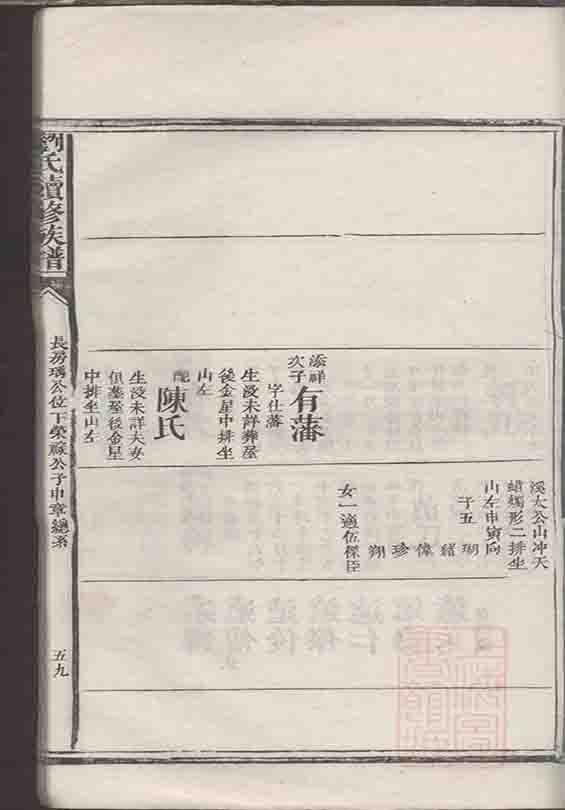 添祥
次子
有藩
字仕藩
生没未詳葬屋
後金星中排坐
山左
配
陳氏
生没未詳夫女
但墓屋後金星
中排坐山左
溪太公山冲天
蜡燭形二排坐
山左申寅向
子五
瑚
緒
偉
珍
翔
女一適伍傑臣
劉氏續修族譜
長房瑀公位下榮祿公子申章總系
五九